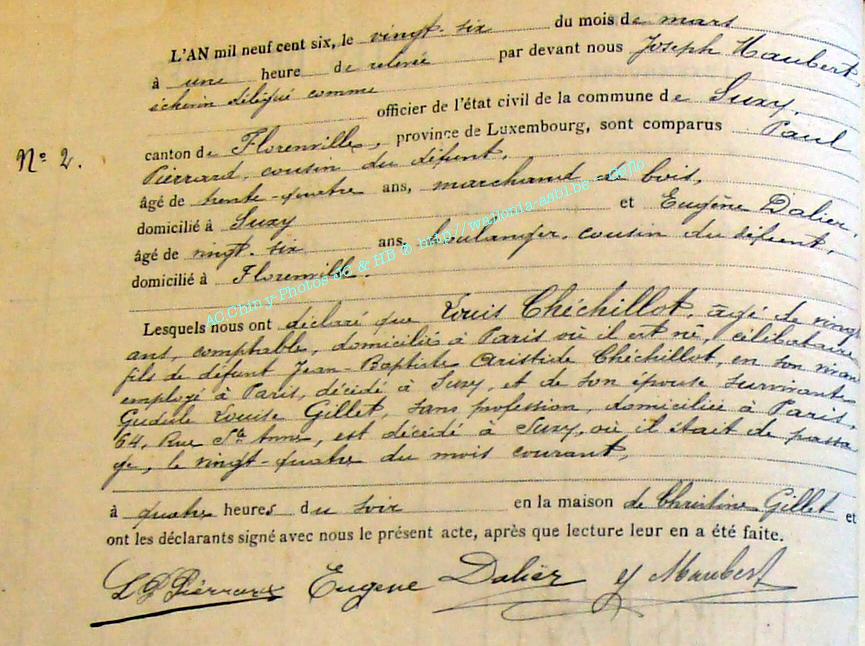 L'AN mil neuf cent six, le vingt-six du mois de mars
à une heure de relevée par devant nous Joseph Maubert
échevin délégué comme
officier de l'état civil de la commune de Suxy,
canton de Florenville, province de Luxembourg, sont comparus Paul
Nº 2.
Pierrard, cousin du défunt,
âgé de trente-quatre ans, marchand de bois,
domicilié à Suxy et Eugène Dalier,
âgé de vingt-six ans, boulanger, cousin du défunt,
domicilié à Florenville.
AC Chiny Photos & HB ® http://wallonia-asbl.be
Lesquels nous ont déclaré que Louis Chéchillot, âgé de vingt
ans, comptable, domicilié à Paris où il est né, célibataire,
fils de défunt Jean-Baptiste Aristide Chéchillot, en son vivant
employé à Paris, décédé à Suxy, et de son épouse survivante
Gudule Louise Gillet, sans profession, domiciliée à Paris,
64, Rue Ste Anne, est décédé à Suxy, où il était de passa
ge, le vingt-quatre du mois courant,
à quatre heures du soir en la maison de Christine Gillet et
ont les déclarants signé avec nous le présent acte, après que lecture leur en a été faite.
Pierrard Eugène Dalier J Maubert